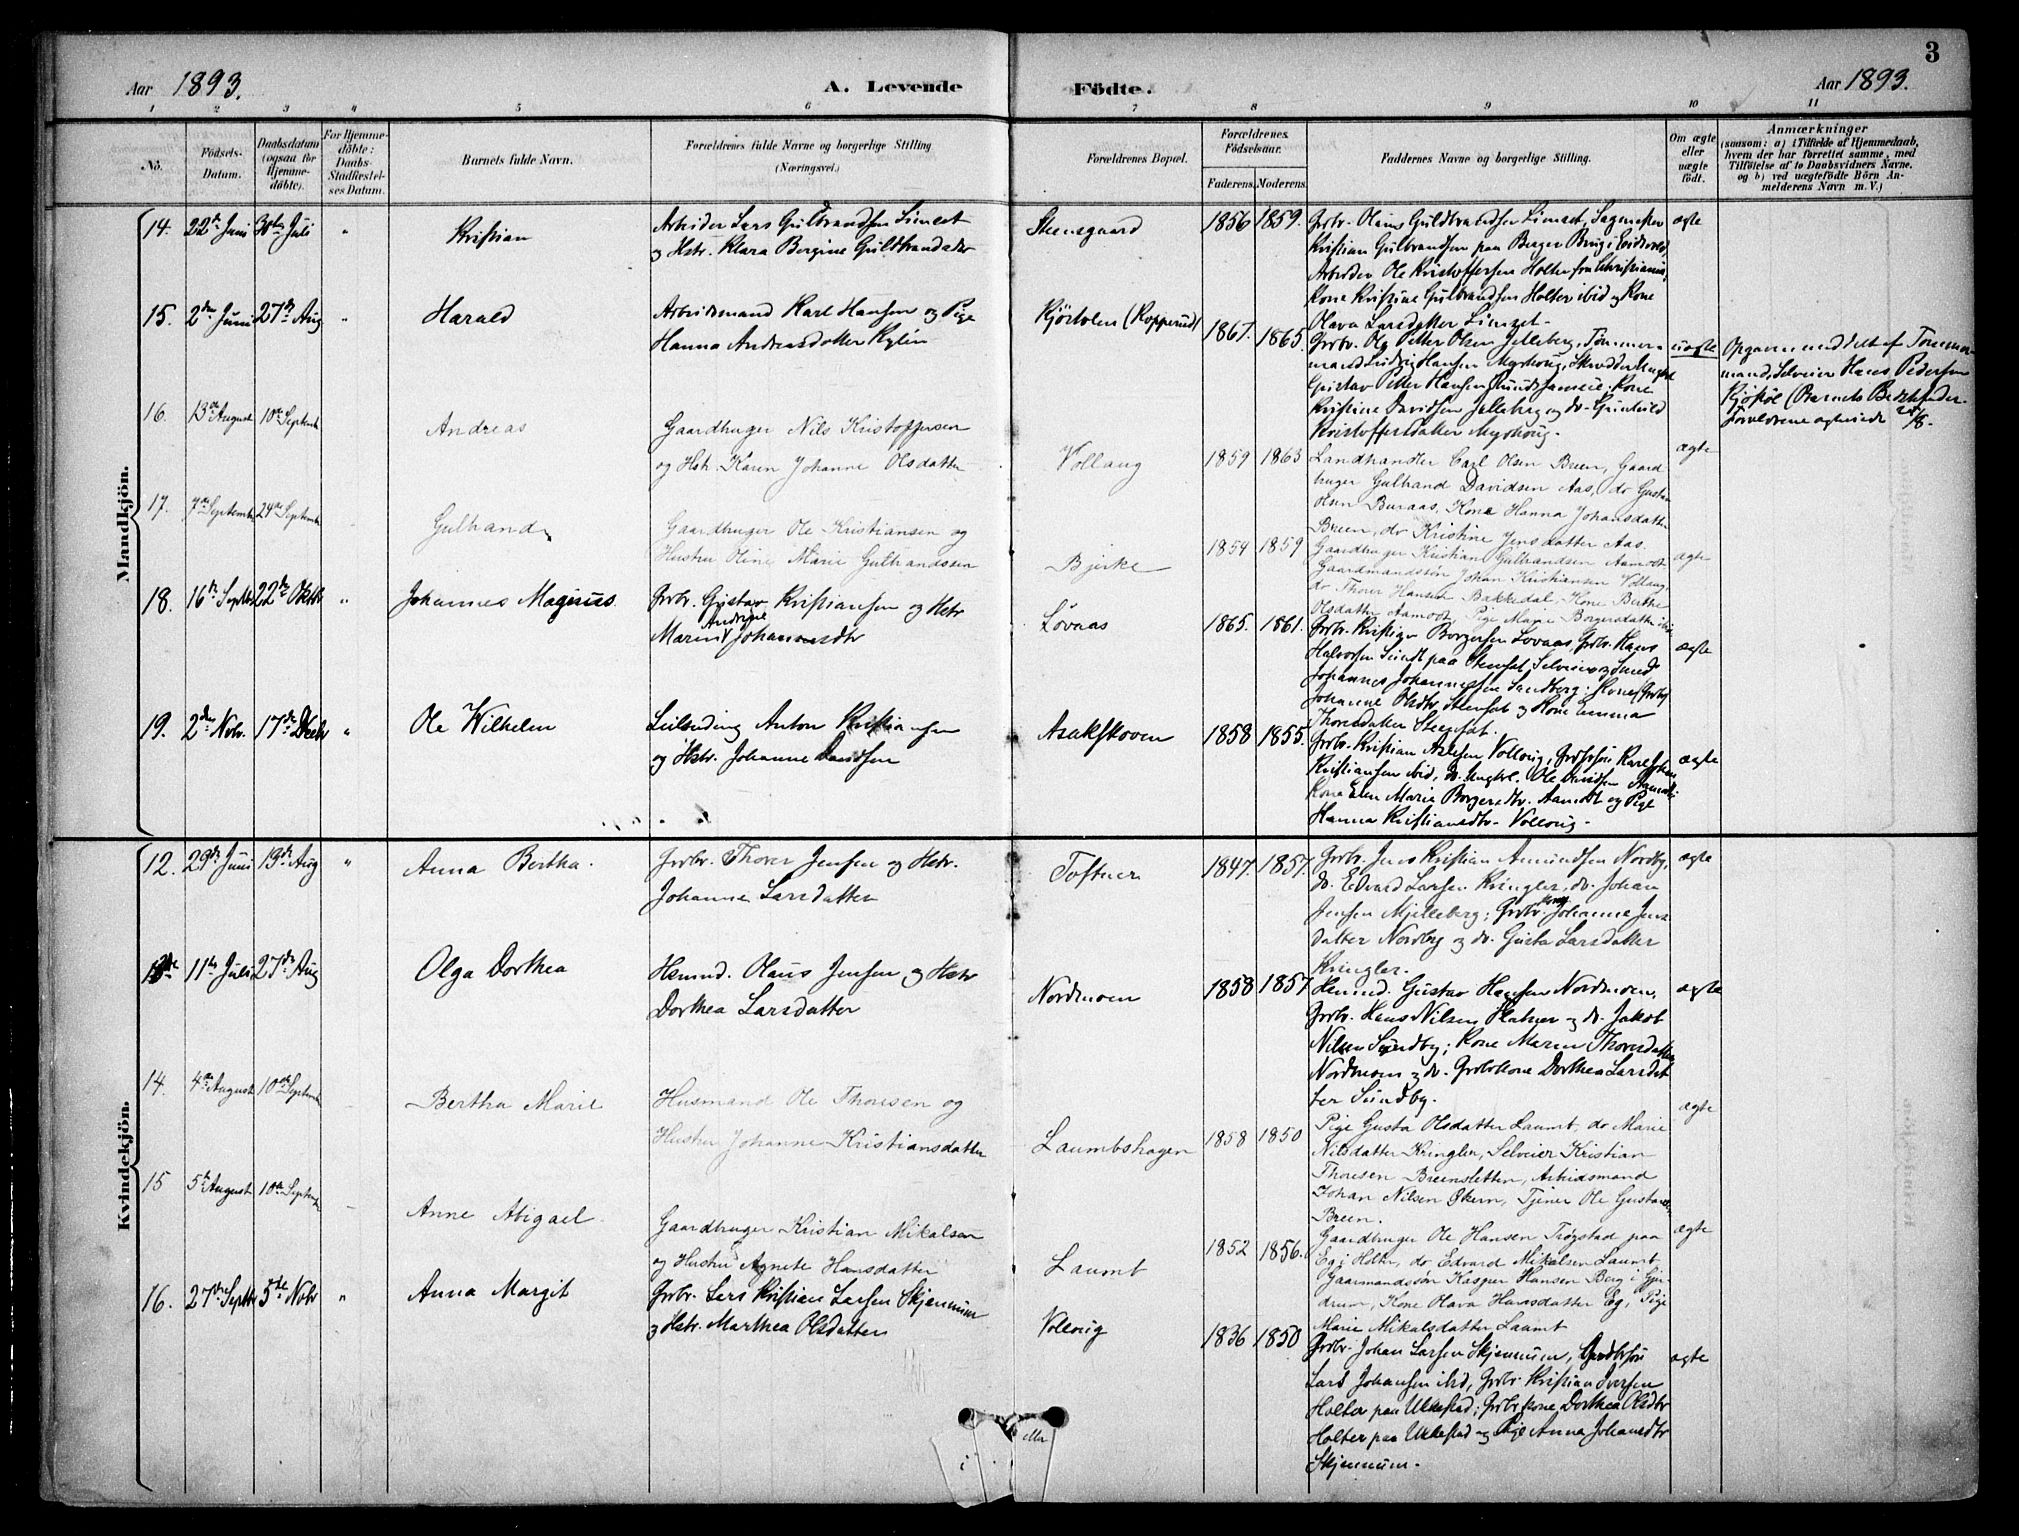 3
Aar 1893.
A. Levende
Födte.
Aar 1893.
1 2 3 4 5 6 7 8 9 10 11
No.
Födsels-
Datum.
Daabsdatum
(ogsaa for
Hjemme-
døbte).
For Hjemme-
døbte:
Daabs-
Stadfæstel-
ses Datum.
Barnets fulde Navn.
Forældrenes fulde Navne og borgerlige Stilling
(Næringsvei.)
Forældrenes Bopæl.
Forældrenes
Födselsaar.
Faderens. Moderens.
Faddernes Navne og borgerlige Stilling.
Om ægte
eller
uægte
født.
Anmærkninger
(saasom: a) i Tilfælde af Hjemmedaab,
hvem der har forrettet samme, med
Tilföielse af to Daabsvidners Navne.
og b) ved uægtefödte Börn An-
melderens Navn m. V.)
Mandkjön.
14. 22de Juni 30te Juli " Kristian
Arbeider Lars Gulbrandsen Limset
og Hstr. Klara Bergine Guldbrandsdtr
Steensgaard 1856 1859.
Grbr. Olaus Guldbrandsen Limset, Sagmester
Kristian Gulbrandsen paa Berger Brug i Eidsvold,
Arbeider Ole Kristoffersen Holter fra Christiania,
Kone Kristine Gulbrandsen Holter ibid og Kone
Olava Larsdatter Limset.
ægte
15. 2den Juni 27de Aug " Harald
Arbeidsmand Karl Hansen og Pige
Hanna Andreasdatter Kylin
Kjörtolen (Kopperud) 1867. 1865.
Grbr. Ole Petter Olsen Jelleberg, Tømmer-
mand Ludvig Hansen Myrhoug, Skredder Ungkl
Gustav Petter Hansen
Kristine Davidsen Jelleberg og do. Gunhild
Kristoffersdatter Myrhoug.
uægte
Opgaven meddelt af Tømmer-
mand, Selveier Hans Pedersen
Kjöstöl (Barnets
Forældrene ægteviede /8.
16. 13de August 10de Septembr Andreas
Gaardbruger Nils Kristoffersen
og Hstr. Karen Johanne Olsdatter
Vollaug 1859 1863
Landhandler Carl Olsen Breen, Gaard
bruger Gulbrand Davidsen Aas, do Gustav
Olsen Buraas, Kone Hanna Johansdatter
Breen, do Kristine Jensdatter Aas.
ægte
17. 7de Septembr 24de Septembr Gulbrand
Gaardbruger Ole Kristiansen og
Hustru Oline Marie Gulbrandssen
Bjerke 1854 1859
Gaardbruger Kristian Gulbrandsen Aamodt
Gaardmandssøn Johan Kristiansen Vollaug,
do Thorer Hansen Bakkedal, Kone Berthe
Olsdatter Aamodt, Pige Marie Borgersdatter ibid
ægte
18. 16de Septbr 22de Oktbr " Johannes Magnus.
Grbr. Gustav Kristiansen og Hstr
Andrine
Maren Johannesdtr
Lövaas 1865. 1861.
Grbr. Kristian Borgersen Lovaas, Grbr. Hans
Halvorsen Sundt paa Stensat, Selveier og Smed
Johannes Johannessen Sandberg, Kone (Grbr)
Johanne Olsdtr. Stensat og Kone Emma
Thoresdatter Steensat.
ægte
19. 2den Nobr. 17de Decbr " Ole Wilhelm
Leilending Anton Kristiansen
og Hstr. Johanne Davidsen
Asakskoven 1858 1855.
Grbr. Kristian Axelsen Vollaug, Grbrsön Karl Johan
Kristiansen ibid, do. Ungkl. Ole Davidsen Aamodt
Kone Elen Marie Borgersdtr. Aamodt og Pige
Hanna Kristiansdtr. Volloug.
ægte
Kvindekjön.
12. 29de Juni 19de Aug " Anna Bertha.
Grbr. Thorer Jensen og Hstr.
Johanne Larsdatter
Toftner 1847. 1857.
Grbr. Jens Kristian Amundsen Nordby,
do. Edvard Larsen Kringler, do. Johan
Jensen Mjelleberg; Grbr. kone Johanne Jens
datter Nordby og do. Gusta Larsdatter
Kringler.
ægte
13de 11te Juli 27de Aug Olga Dorthea
Hsmnd. Olaus Jensen og Hstr
Dorthea Larsdatter
Nordmoen 1858 1857
Hsmnd. Gustav Hansen Nordmoen,
Grbr. Hans Nilsen og do. Jakob
Nilsen Sundby; Kone Maren Thorersdatter
Nordmoen og do. Grbrkone Dorthea Larsdat
ter Sundby.
ægte
14. 4de August 10de Septembr Bertha Marie
Husmand Ole Thoresen og
Hustru Johanne Kristiansdatter
Laumbshagen 1858 1850
Pige Gusta Olsdatter Laumt, do Marie
Nilsdatter Kringler, Selveier Kristian
Thoresen Breensletten, Arbeidsmand
Johan Nilsen Økern, Tjener Ole Gustavsen
Breen.
ægte
15 5te August 10de Septembr Anne Abigael
Gaardbruger Kristian Mikalsen
og Hustru Agnete Hansdatter
Laumt 1852 1856.
Gaardbruger Ole Hansen Trøgstad paa
Eg i Holter, do Edvard Mikalsen Laumt,
Gaarmandssøn Kasper Hansen Berg i Gjer
drum, Kone Olava Hansdatter Eg, Pige
Marie Mikalsdatter Laumt
ægte
16. 27de Septbr 5te Nobr " Anna Margit
Grbr. Lars Kristian Larsen Skjennum
og Hstr. Marthea Olsdatter
Volloug 1836 1850
Grbr. Johan Larsen Skjennum, Grdbrsön
Lars Johansen ibid, Grbr Kristian Iversen
Holter paa Ukkestad; Grbrkone Dorthea Olsdtr
Holter paa Ukkestad og Pige Anna Johansdtr
Skjennum.
ægte